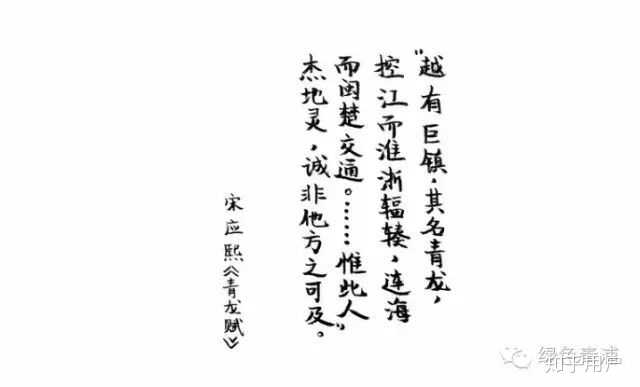 “越有巨镇，其名青龙，
控江而淮浙辐辏，连海
而闽楚交通。……惟此人
杰地灵，诚非他方之可及。”
宋应熙《青龙赋》
绿色青浦
知乎用户